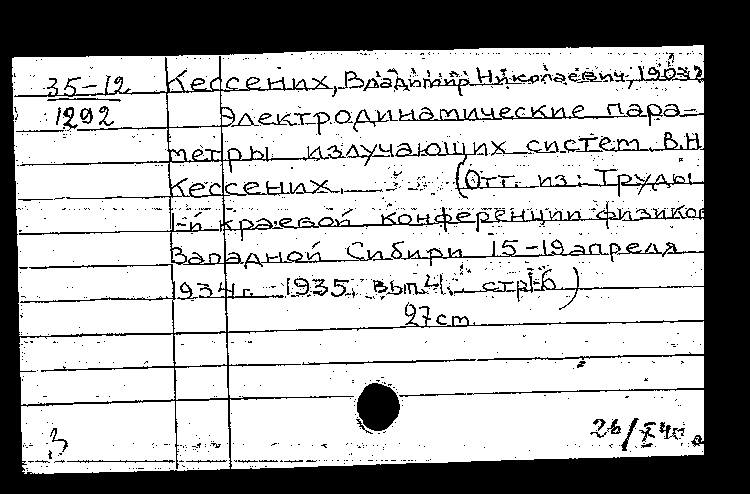 35-12 Кессених, Владимир Николаевич, 1903
1292 Электродинамические пара=
метры излучающих систем В.Н
Кессених. (Отт. из: Труды
1-й краевой конференции физиков
Западной Сибири 15-19 апреля
1934 г. 1935, вып. 4, стр 1-6)
27 cm.
3
26/X